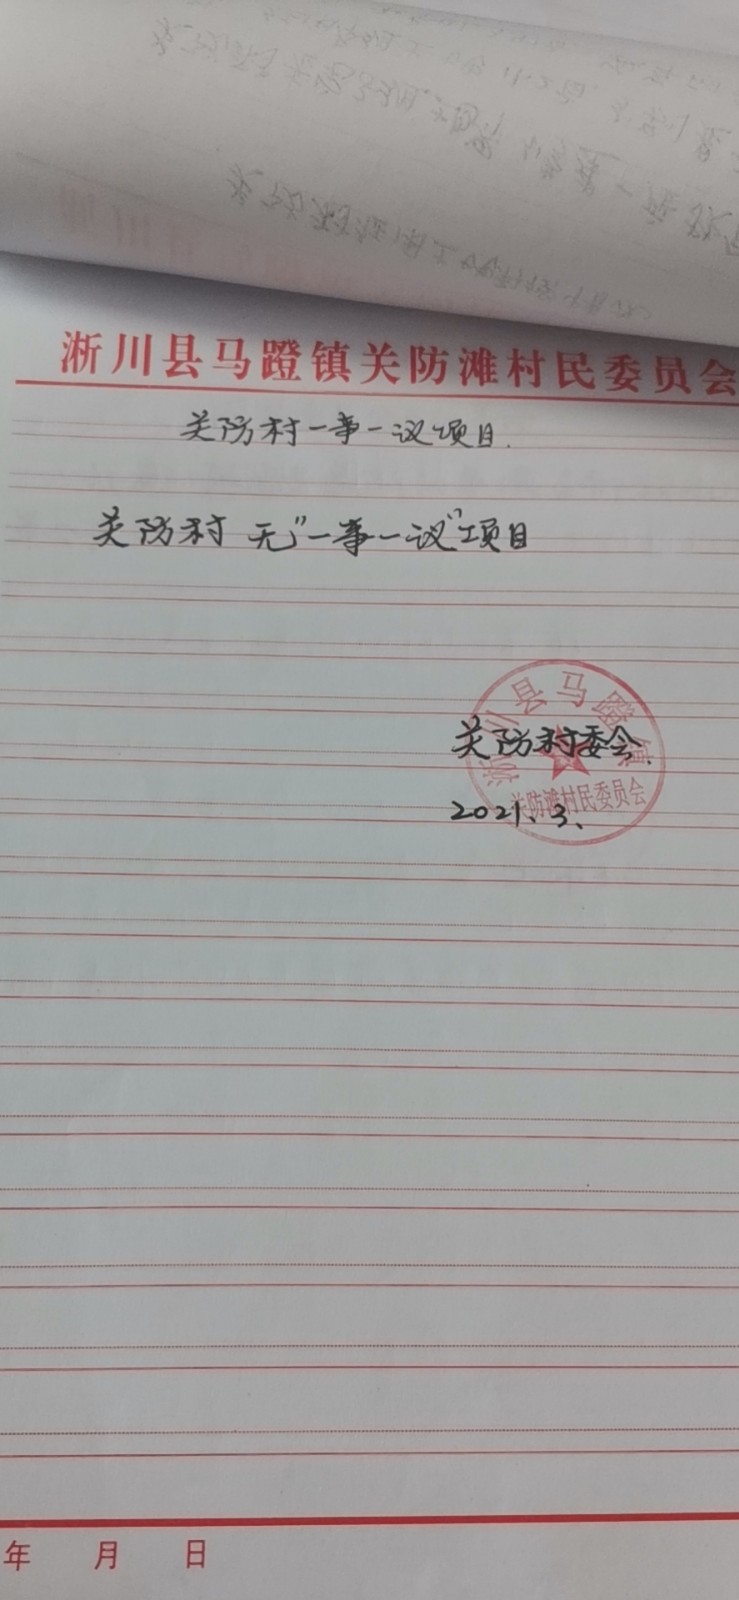 淅川县马蹬镇关防滩村民委员会
关防村一事一议项目.
关防村 无"一事一议"项目
淅川县马蹬镇
关防村委会.
关防滩村民委员会
2021、3、
年 月 日